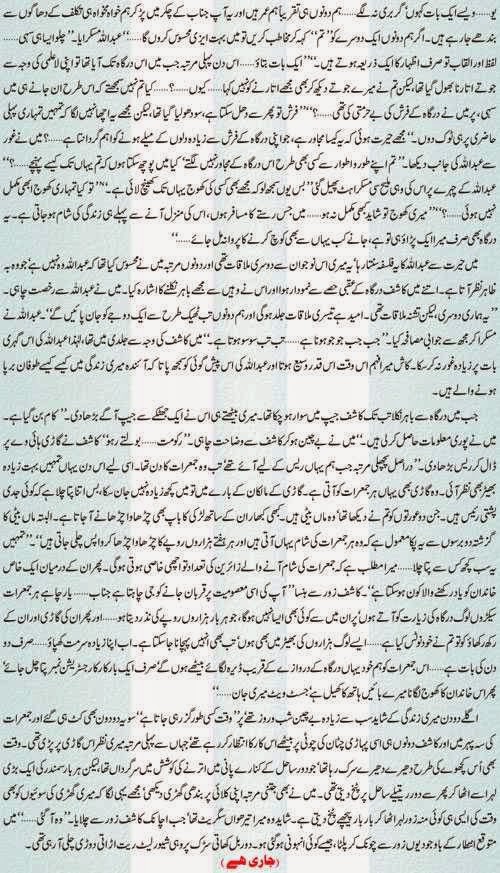 یو...... ویسے ایک بات کہوں گر بری نہ لگے...... ہم دونوں ہی تقریباً ہم عمر ہیں اور یہ آپ جناب کے چکر میں پڑ کر ہم خواہ مخواہ ہی تکلف کے دھاگوں سے
بندھے جارہے ہیں۔ اگر ہم دونوں ایک دوسرے کو ”تم“ کہہ کر مخاطب کریں تو میں بہت ایزی محسوس کروں گا......“ عبداللہ مسکرایا۔ ”چلو ایسا ہی سہی......
لفظ اور القاب تو صرف اظہار کا ایک ذریعہ ہوتے ہیں۔“ ”ایک بات بتاؤ...... اس دن پہلی مرتبہ جب میں اس درگاہ تک آیا تھا تو اپنی لاعلمی کی وجہ سے
جوتے اتارنا بھول گیا تھا، لیکن تم نے میرے جوتے دیکھ کر بھی مجھے اتارنے کو نہیں کہا...... کیوں......؟ کیا تم نہیں سمجھتے کہ اس طرح ان جانے ہی میں
سہی، پر میں نے درگاہ کے فرش کی بے حرمتی کی تھی......؟“ ”فرش تو پھر سے دھل سکتا ہے، سو دھلوا لیا گیا تھا، لیکن مجھے یہ اچھا نہیں لگا کہ تمہیں تمہاری پہلی
حاضری پر ہی ٹوک دوں۔“ مجھے حیرت ہوئی کہ یہ کیسا مجاور ہے، جو اپنی درگاہ کے فرش سے زیادہ دلوں کے میلے ہونے کو اہم گردانتا ہے......؟ میں نے غور
سے عبداللہ کی جانب دیکھا۔ ”تم اپنے طور و اطوار سے کسی بھی طرح اس درگاہ کے مجاور نہیں لگتے کیا میں پوچھ سکتا ہوں کہ تم یہاں تک کیسے پہنچے......؟“
عبداللہ کے چہرے پر اس کی وہی ملیح سی مسکراہٹ پھیل گئی ”بس یوں سمجھ لو کہ مجھے بھی کسی کی کھوج یہاں تک کھینچ لائی ہے۔“ ”تو کیا تمہاری کھوج ابھی مکمل
نہیں ہوئی......؟“ ”میری کھوج تو شاید کبھی مکمل نہ ہو...... میں جس رستے کا مسافر ہوں، اس کی منزل آنے سے پہلے ہی زندگی کی شام ہو جاتی ہے۔ یہ
درگاہ بھی صرف میرا ایک پڑاؤ ہی تو ہے، جانے کب یہاں سے بھی کوچ کرنے کا پروانہ مل جائے......“
میں حیرت سے عبداللہ کا یہ فلسفہ سنتا رہا یہ میری اس نوجوان سے دوسری ملاقات تھی اور دونوں مرتبہ میں نے محسوس کیا تھا کہ عبداللہ وہ نہیں ہے جو وہ بہ
ظاہر نظر آتا ہے۔ اتنے میں کاشف درگاہ کے عقبی حصے سے نمودار ہوا اور اس نے وہیں سے مجھے باہر نکلنے کا اشارہ کیا۔ میں نے عبداللہ سے رخصت چاہی۔
”یہ ہماری دوسری، لیکن تشنہ ملاقات تھی۔ امید ہے تیسری ملاقات جلد ہو گی اور ہم دونوں تب ٹھیک طرح سے ایک دوجے کو جان پائیں گے“۔ عبداللہ نے
مسکرا کر مجھ سے جوابی مصافحہ کیا۔ ”جب جب جو جو ہونا ہے...... تب تب سو سو ہوتا ہے......“ میں کاشف کی وجہ سے جلدی میں تھا، لہٰذا عبداللہ کی اس گہری
بات پر زیادہ غور نہ کر سکا۔ کاش میرا فہم اس وقت اس قدر وسیع ہوتا اور عبداللہ کی اس پیش گوئی کو سمجھ پاتا کہ آئندہ میری زندگی میں کیسے کیسے طوفان برپا
ہونے والے ہیں۔
جب میں درگاہ سے باہر نکلا تب تک کاشف جیپ میں سوار ہو چکا تھا۔ میری بیٹھتے ہی اس نے ایک جھٹکے سے جیپ آگے بڑھا دی۔ ”کام بن گیا ہے۔
میں نے پوری معلومات حاصل کر لی ہیں۔“ میں نے بے چین ہو کر کاشف سے وضاحت چاہی۔ ”رکو مت...... بولتے رہو“ کاشف نے گاڑی ہائی وے پر
ڈال کر ریس بڑھا دی۔ ”دراصل پچھلی مرتبہ جب ہم یہاں ریس کے لیے آئے تھے تب وہ جمعرات کا دن تھا۔ اسی لیے اس دن یہاں تمہیں بہت زیادہ
بھیڑ بھی نظر آئی۔ وہ گاڑی بھی یہاں ہر جمعرات کو آتی ہے۔ گاڑی کے مالکان کے بارے میں تو میں کچھ زیادہ نہیں جان سکا، بس اتنا پتا چلا ہے کہ کوئی جدی
پشتی رئیس ہیں۔ جن دو عورتوں کو تم نے دیکھا تھا وہ ماں بیٹی ہیں۔ کبھی کبھار ان کے ساتھ لڑکی کا باپ بھی چڑھاوا چڑھانے آ جاتا ہے۔ البتہ ماں بیٹی کا
گزشتہ دو برسوں سے یہ پکا معمول ہے کہ وہ ہر جمعرات کی شام یہاں آتی ہیں اور ہر ہفتے ہزاروں روپے کا چڑھاوا چڑھا کر واپس چلی جاتی ہیں“۔ ”تمہیں
یہ سب کچھ کس سے پتا چلا...... میرا مطلب ہے کہ جمعرات کی شام کو یہاں آنے والے زائرین کی تعداد تو اچھی خاصی ہوتی ہو گی۔ پھر ان کے درمیان ایک خاص
خاندان کو یاد رکھنے والا کون ہو سکتا ہے“۔ کاشف زور سے ہنسا ”آپ کی اسی معصومیت پر قربان جانے کو جی چاہتا ہے جناب...... یار چاہے ہر جمعرات
سیکڑوں لوگ درگاہ کی زیارت کو آتے ہوں پر ان میں سے کوئی بھی ایسا نہیں ہو گا، جو ہر بار ہزاروں روپے کی نذر دیتا ہو...... اور پھر ان کی گاڑی اور ان کے
رکھ رکھاؤ کو تو تم نے خود نوٹس کیا ہے...... ایسے لوگ ہزاروں کی بھیڑ میں بھی ہوں تب بھی انہیں پہچانا جا سکتا ہے۔ اب اپنا زیادہ سر مت کھپاؤ...... صرف دو
دن کی بات ہے...... اس جمعرات کو ہم خود یہاں درگاہ کے دروازے کے قریب ڈیرہ لگائے بیٹھے ہوں گے صرف ایک بار کار کا رجسٹریشن نمبر پتا چل جائے
پھر اس خاندان کا کھوج لگانا میرے بائیں ہاتھ کا کھیل ہے جسٹ ویٹ میری جان......“
اگلے دو دن میری زندگی کے شاید سب سے زیادہ بے چین شب و روز تھے ”وقت کسی طور گزر ہی جاتا ہے“ سو یہ دو دن بھی کٹ ہی گئے اور جمعرات
کی سہ پہر میں اور کاشف دونوں ہی اسی پہاڑی چٹان کی چوٹی پر بیٹھے اس کار کا انتظار کر رہے تھے جہاں سے پہلی مرتبہ میری نظر اس گاڑی پر پڑی تھی۔ وقت
بھی اس کچھوے کی طرح دھیرے دھیرے سرک رہا تھا جو دور ساحل کے کنارے پانی میں اترنے کی کوشش میں سرگرداں تھا، لیکن ہر بار سمندر کی ایک بڑی
لہر اٹھا کر پھر سے دور ریتیلے ساحل پر پٹخ دیتی تھی۔ میں نے بھی جتنی مرتبہ اپنی کلائی پر بندھی گھڑی دیکھی مجھے یہی لگا کہ میری گھڑی کی سوئیوں کو بھی
وقت کی ایسی ہی کوئی منہ زور لہر اٹھا کر بار بار پیچھے پٹخ دیتی ہے۔ شاید وہ میرا تیرھواں سگریٹ تھا، جب اچانک کاشف زور سے چلایا۔ ”وہ آ گئی......“ میں
متوقع انتظار کے باوجود یوں زور سے چونک کر پلٹا، جیسے کوئی انہونی ہو گئی ہو۔ دور بل کھاتی سڑک پر وہی شیورلیٹ ریت اڑاتی دوڑی چلی آ رہی تھی۔
(جاری ھے)